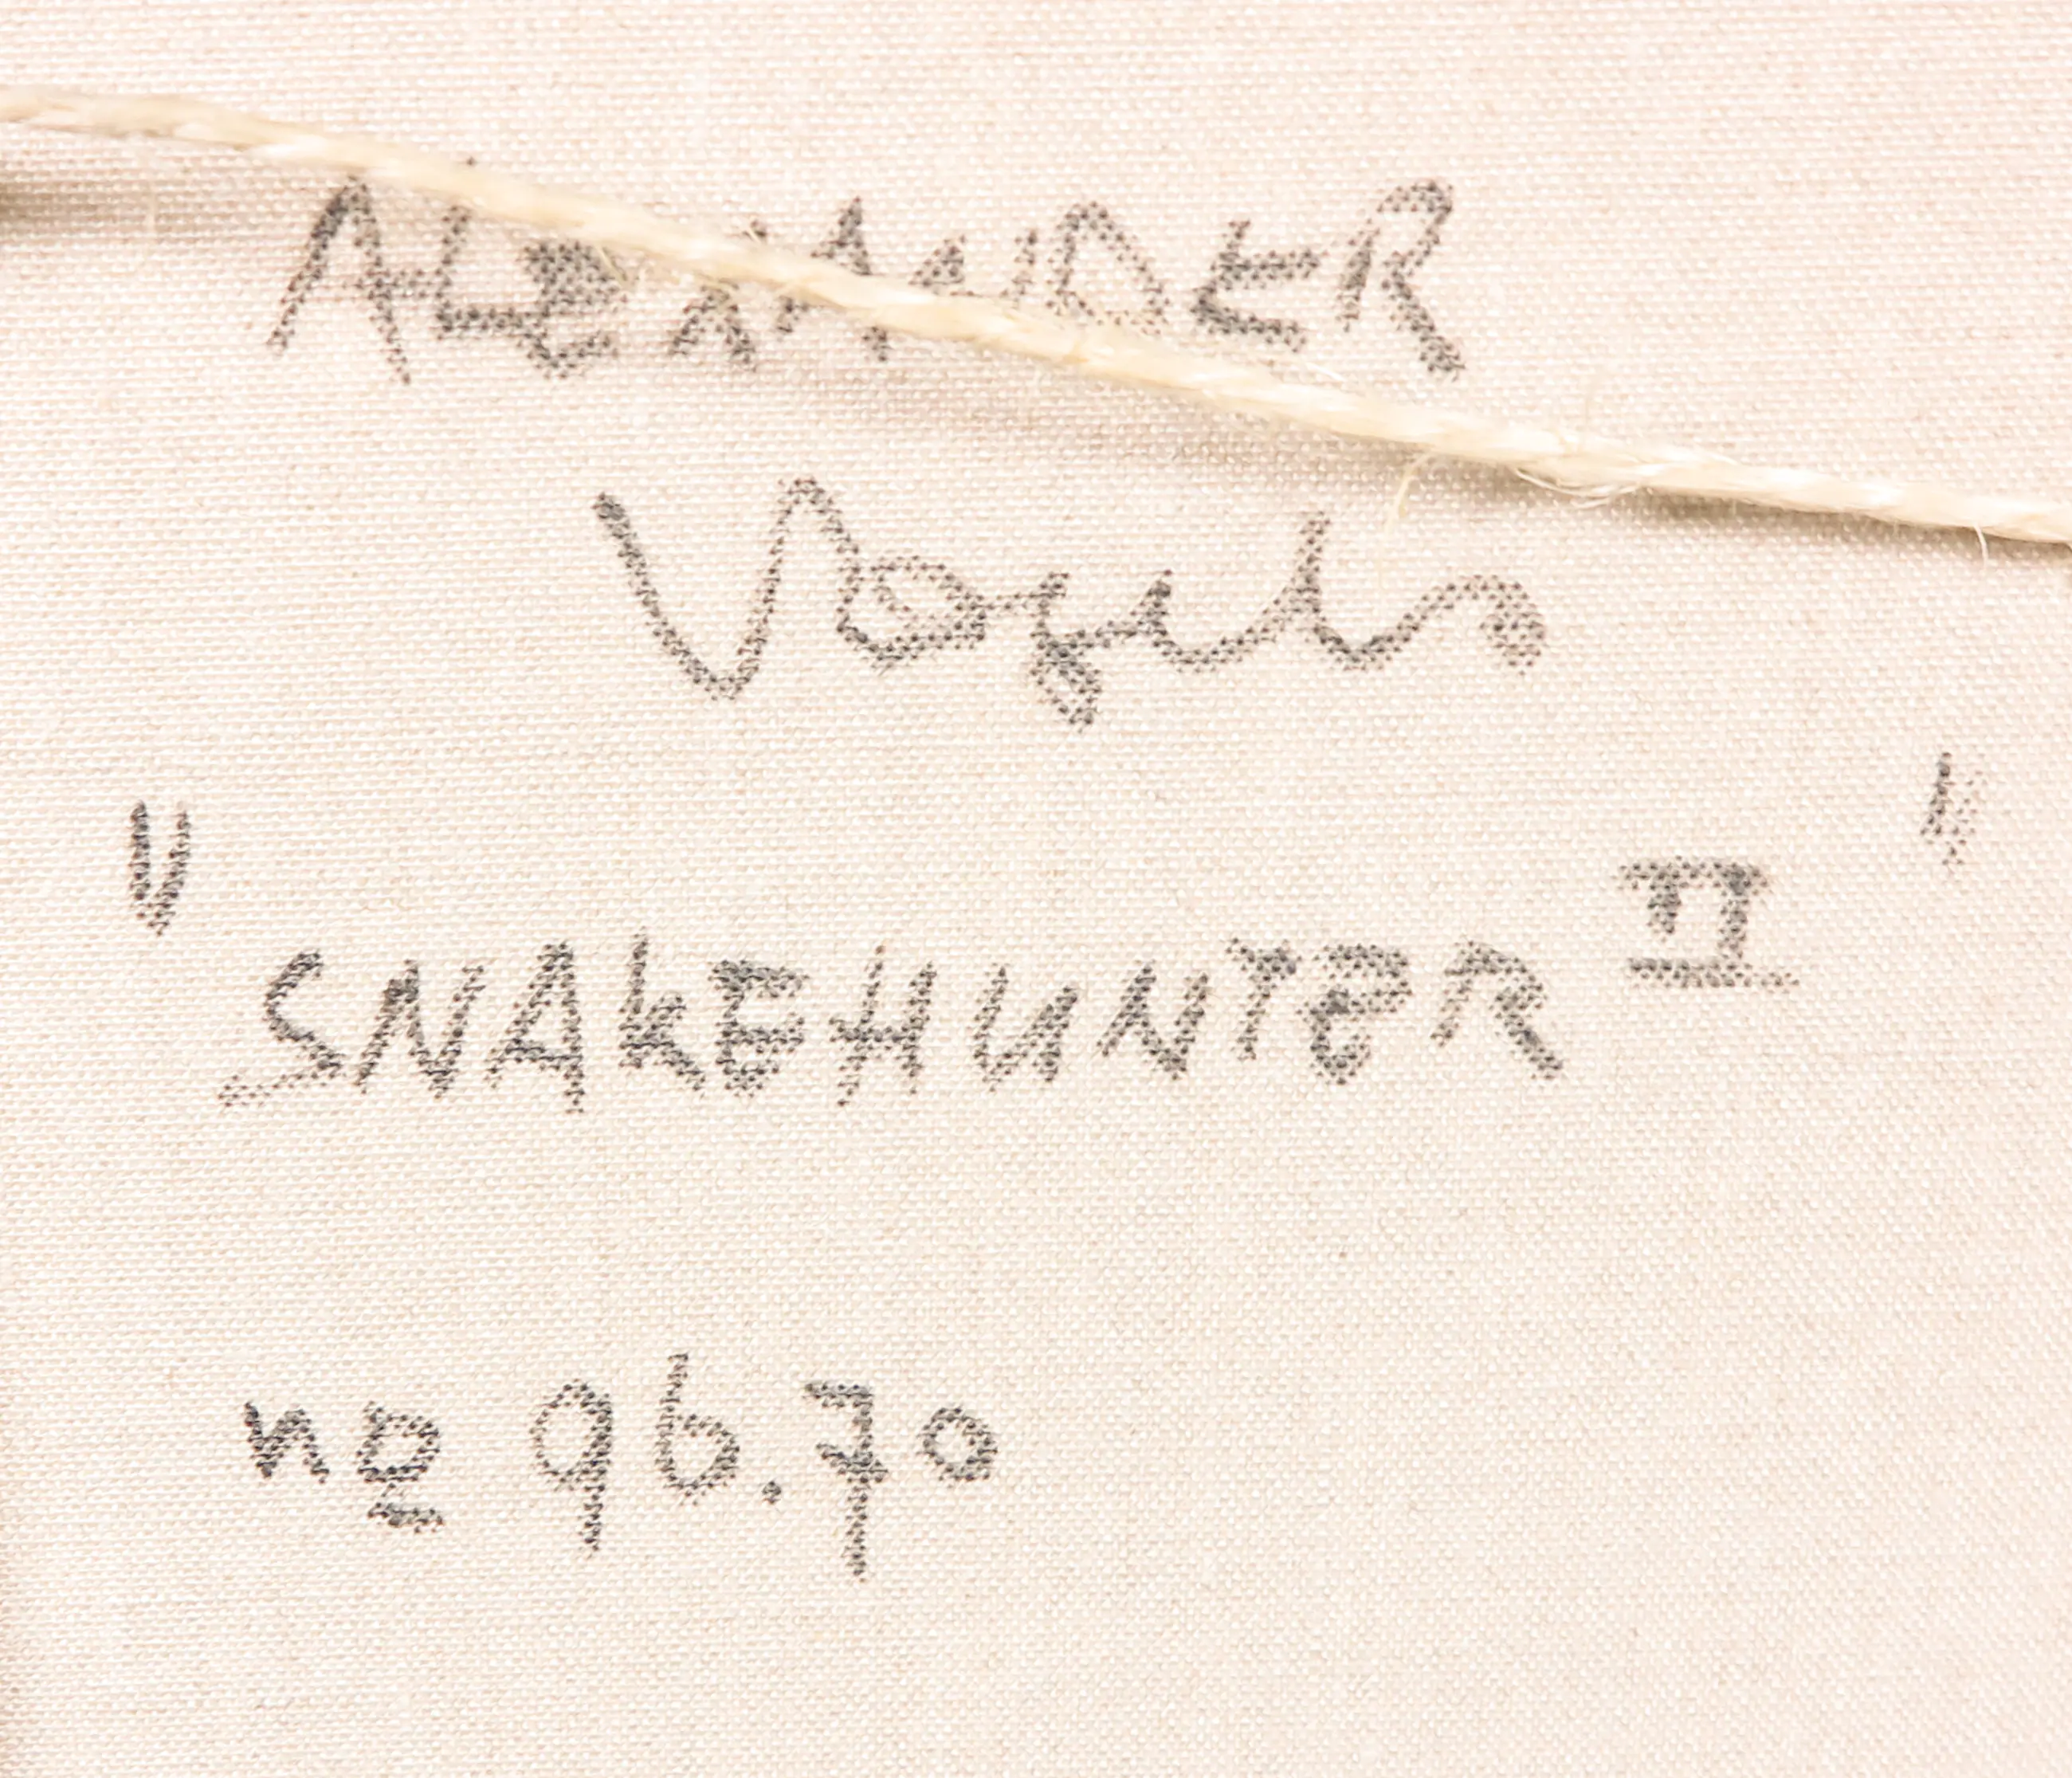 ALEXANDER
Vogels
"SNAKEHUNTER II"
nº 96.70